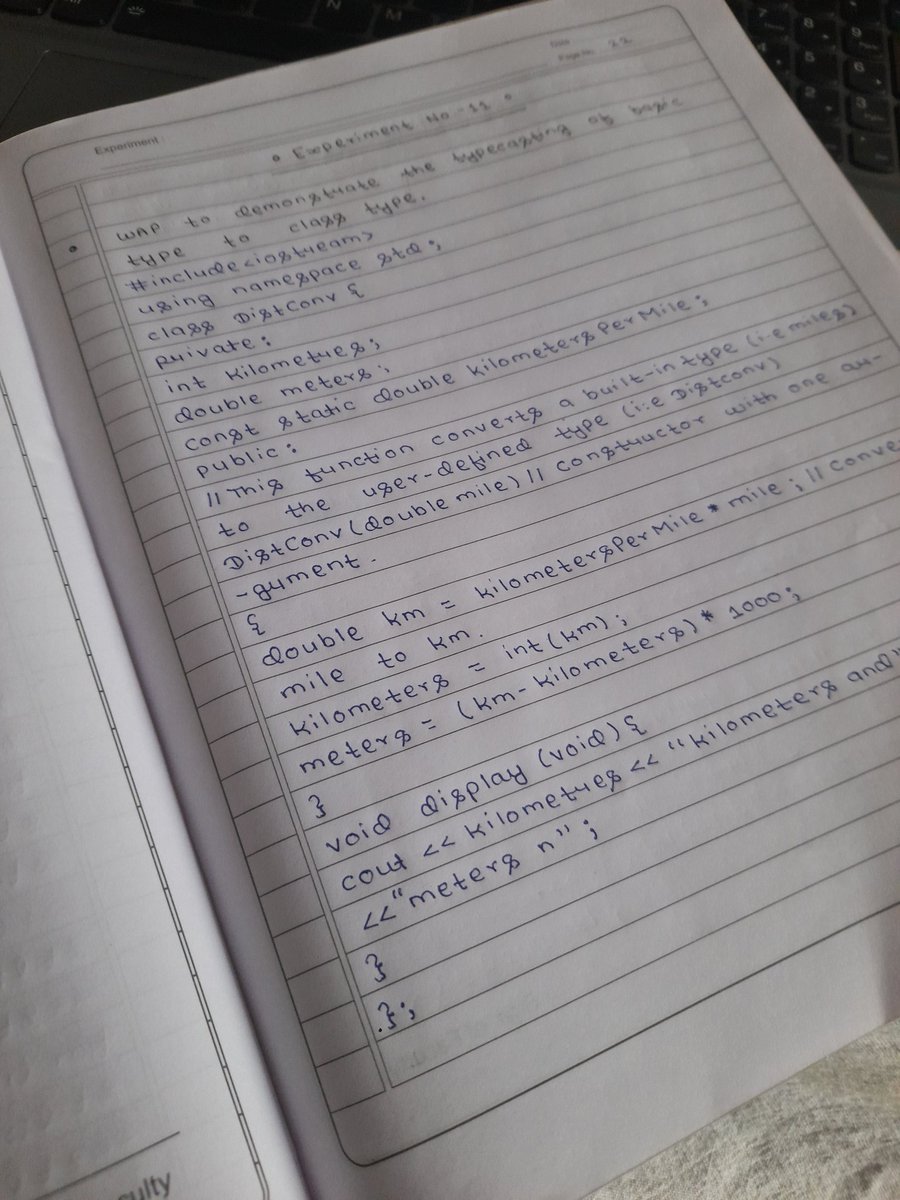 Date
Page No. 22
Experiment
• Experiment No - 11 •
• WAP to demonstrate the typecasting of basic
type to class type.
#include<iostream>
using namespace std;
class DistConv {
private:
int kilometres;
double meters;
const static double kilometersPerMile;
public:
// This function converts a built-in type (i.e miles)
to the user-defined type (i:e Distconv)
DistConv(double mile) // constructor with one ar-
-gument.
{
double km = kilometersPerMile * mile; // conve
mile to km.
kilometers = int(km);
meters = (km-kilometers) * 1000;
}
void display (void) {
cout << kilometres << "kilometers and"
<<"meters n";
}
};
culty